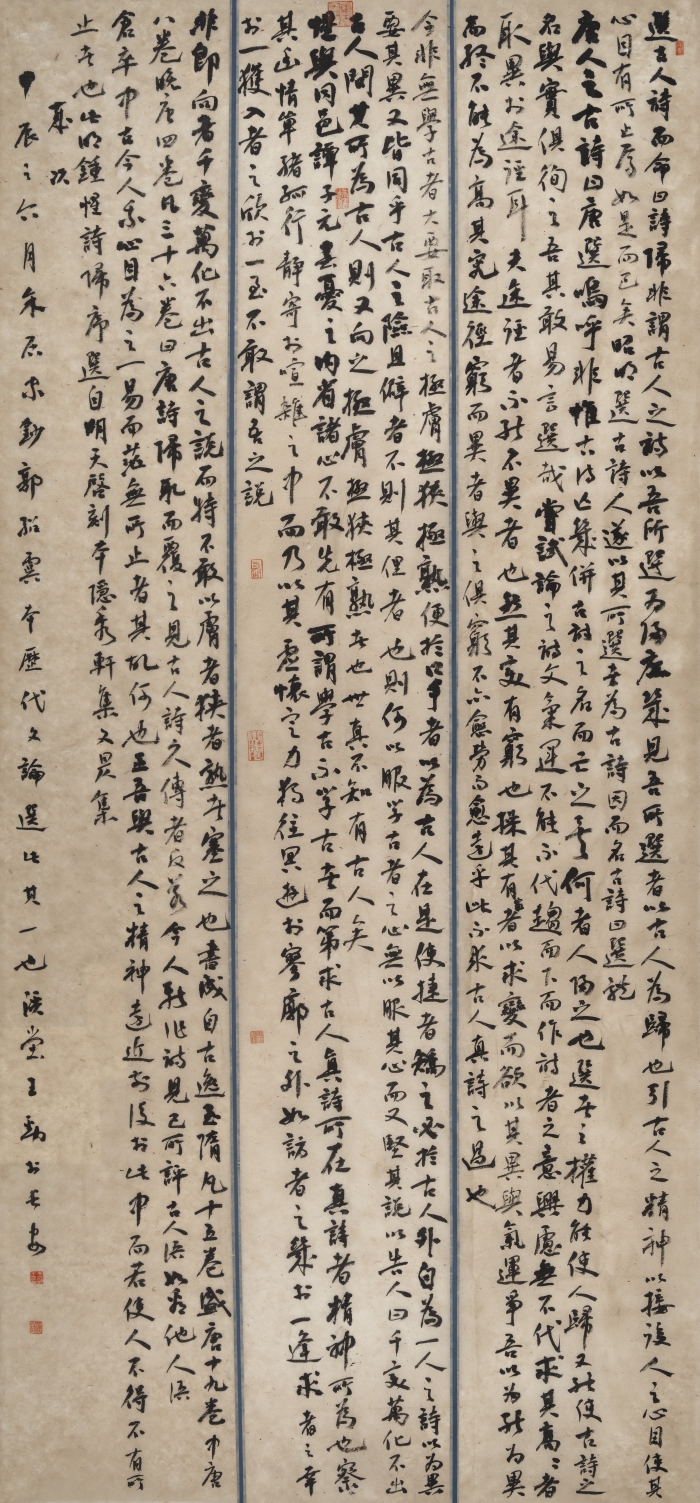 選古人詩而命曰詩歸非謂古人之詩以吾所選為歸庶幾見吾所選者以古人為歸也引古人之精神以接後人之心目使其
心目有所止焉如是而已矣昭明選古詩人遂以其所選者為古詩因而名古詩曰選體
唐人之古詩曰唐選嗚呼非惟古詩亡幾併古詩之名而亡之矣何者人歸之也選者之權力能使人歸又能使古詩之
名與實俱徇之吾其敢易言選哉嘗試論之詩文氣運不能不代趨而下而作詩者之意興慮無不代求其高高者
取異於途徑耳夫途徑者不能不異者也然其變有窮也操其有窮者以求變而欲以其異與氣運爭吾以為能為異
而終不能為高其究途徑窮而異者與之俱窮不亦愈勞而愈遠乎此不求古人真詩之過也
今非無學古者大要取古人之極膚極狹極熟便於口手者以為古人在是使捷者矯之必於古人外自為一人之詩以為異
要其異又皆同乎古人之險且僻者不則其俚者也則何以服學古者之心無以服其心而又堅其說以告人曰千變萬化不出
古人問其所為古人則又向之極膚極狹極熟者也世真不知有古人矣
惺與同邑譚子元春憂之內省諸心不敢先有所謂學古不學古者而第求古人真詩所在真詩者精神所為也察
其幽情單緒孤行靜寄於喧雜之中而乃以其虛懷定力獨往冥遊於寥廓之外如訪者之幾於一逢求者之幸
於一獲入者之欣於一至不敢謂吾之說
非即向者千變萬化不出古人之說而特不敢以膚者狹者熟者塞之也書成自古逸至隋凡十五卷盛唐十九卷中唐
八卷晚唐四卷凡三十六卷曰唐詩歸取而覆之見古人詩久傳者反若今人新作詩見己所評古人語如看他人語
倉卒中古今人我心目為之一易而茫無所止者其故何也正吾與古人之精神遠近前後於此中而若使人不得不有所
止者也此明鍾惺詩歸序選自明天啟刻本隱秀軒集文昃集
歲次
甲辰之六月鈔郭紹虞本歷代文論選此其一也